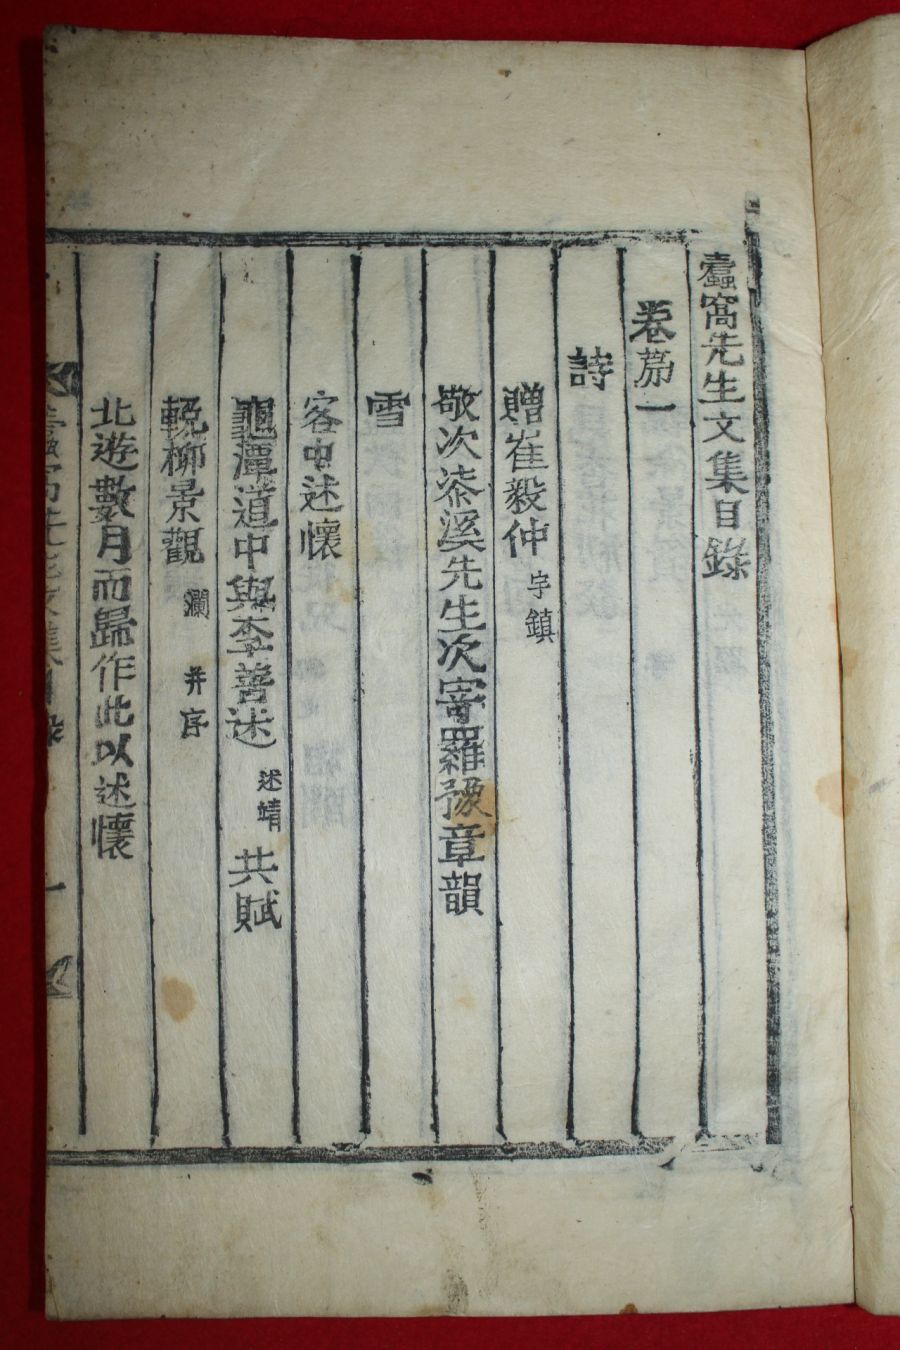 蠹窩先生文集目錄
卷苐一
詩
贈崔毅仲 字鎭
敬次漆溪先生次寄羅豫章韻
雪
客中述懷
龜潭道中與李善述 述靖 共賦
輓柳景觀 瀾 幷序
北遊數月而歸作此以述懷